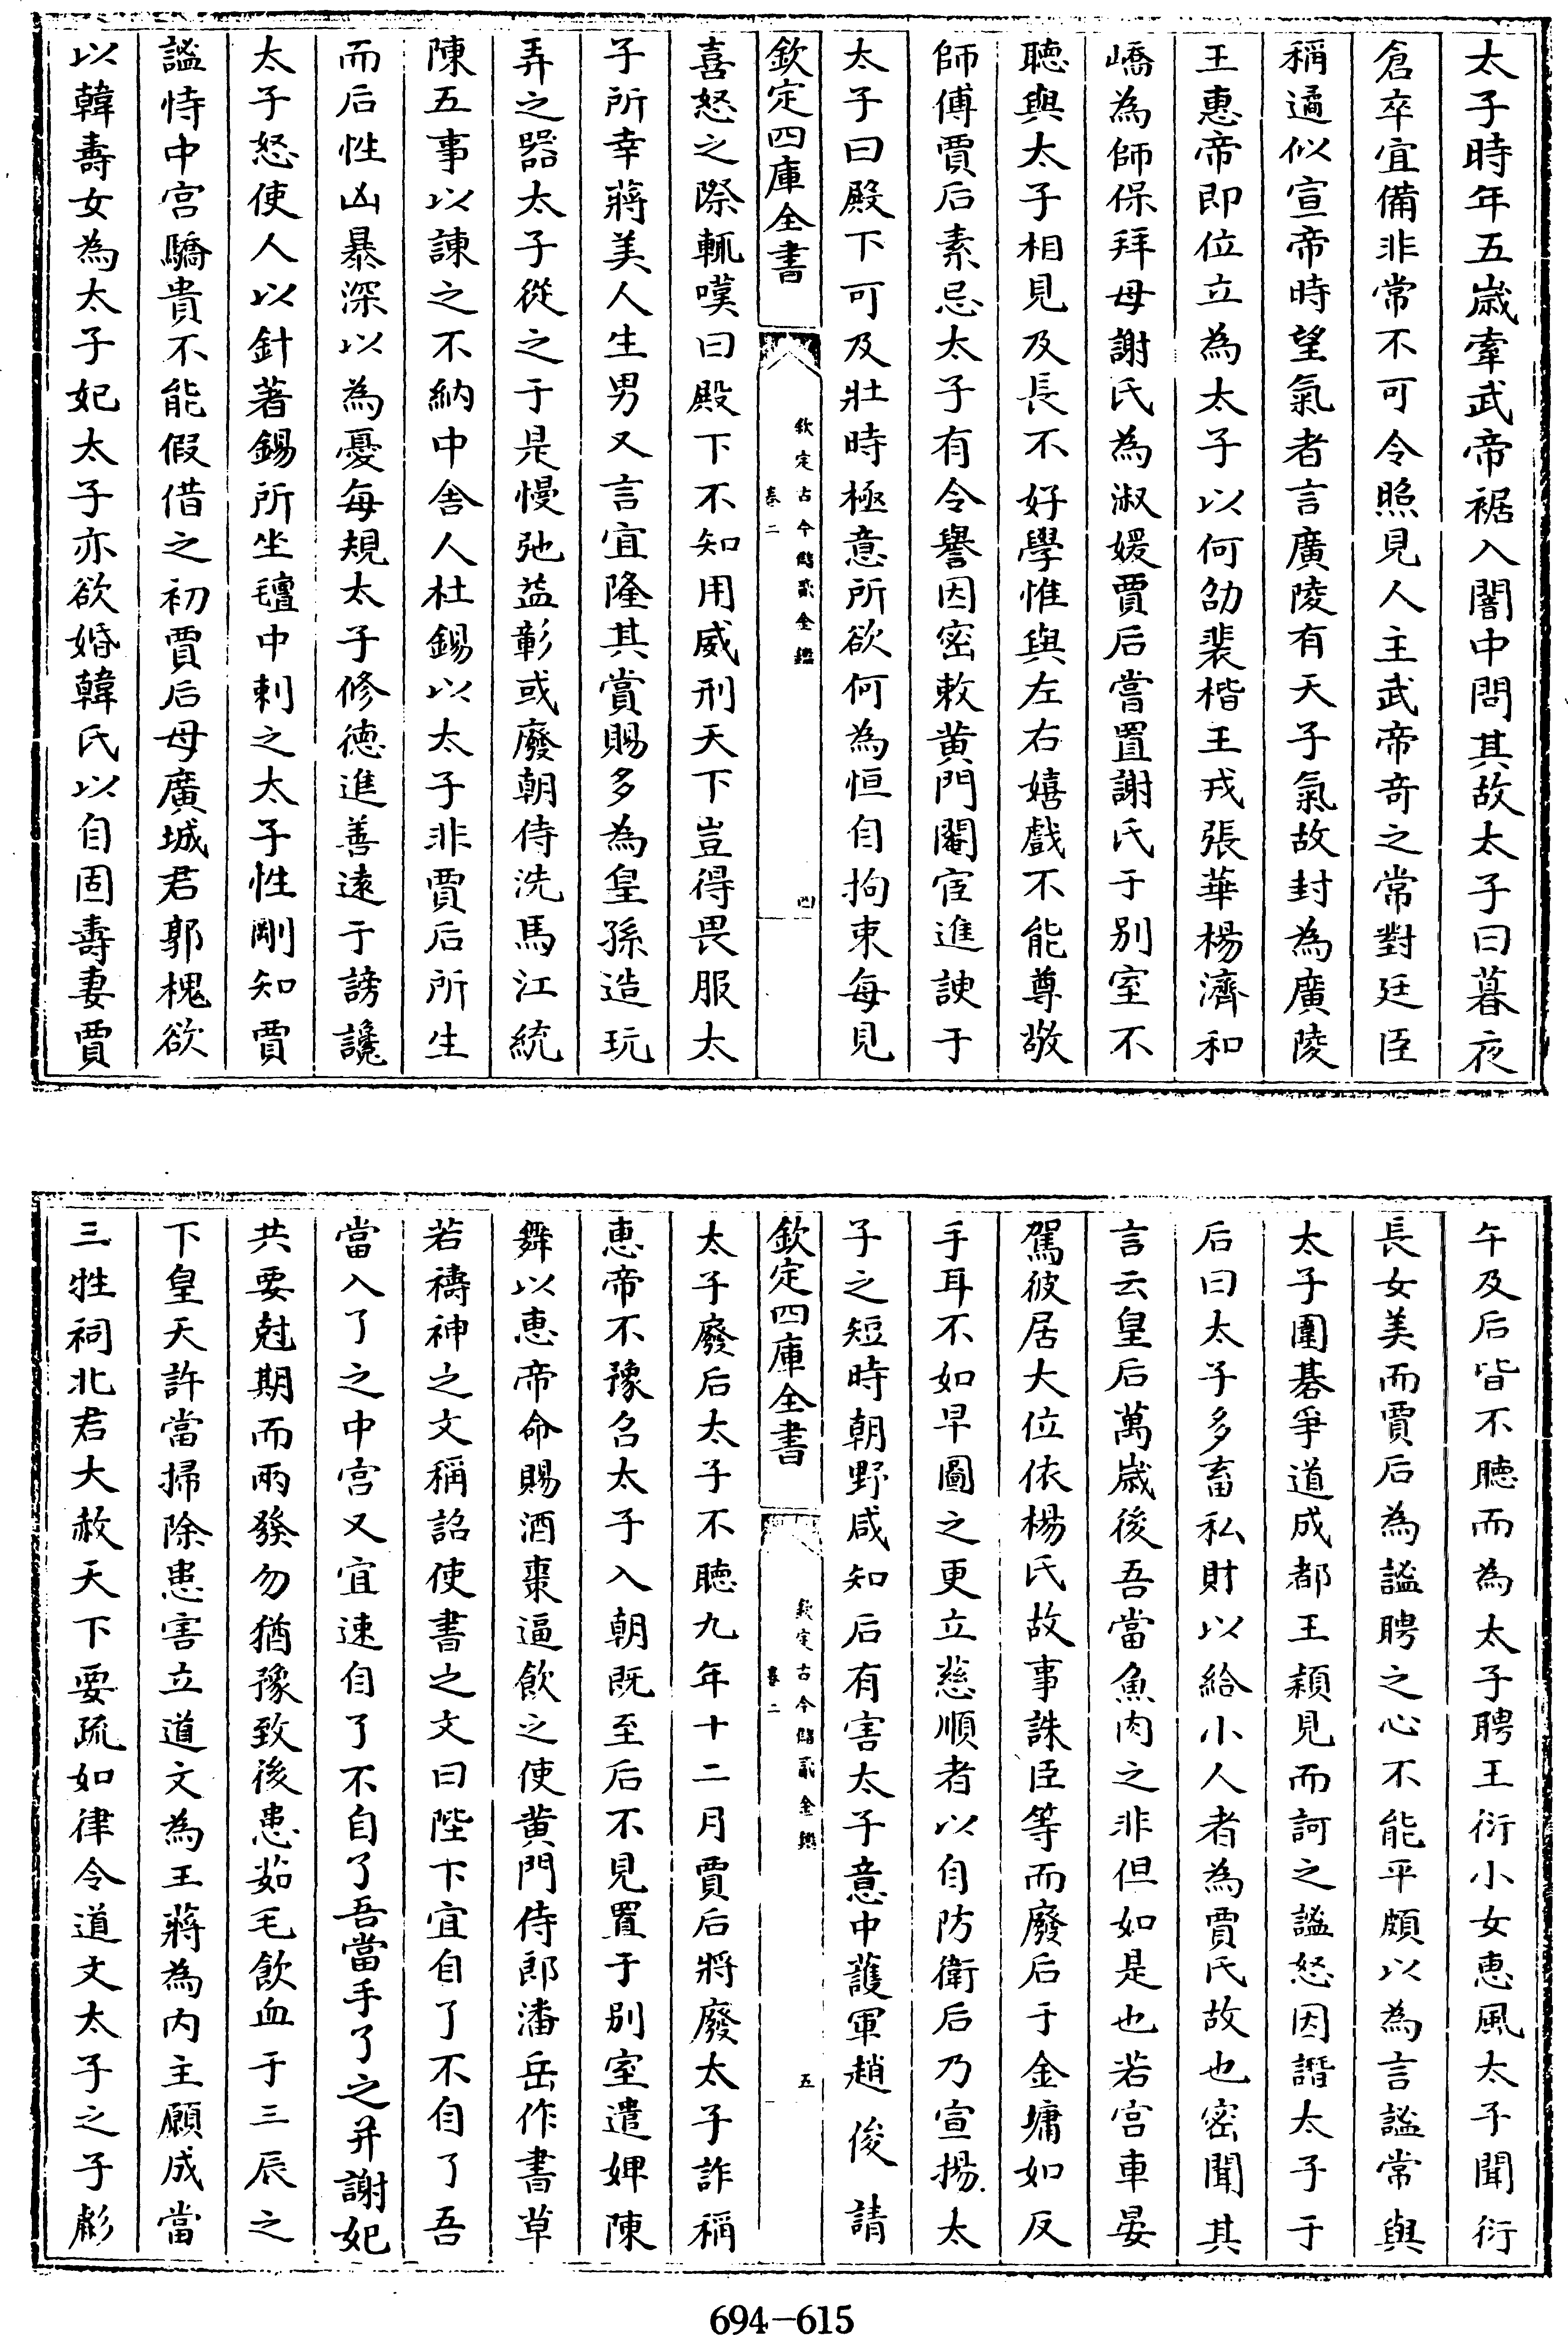 太子時年五歲牽武帝裾入闇中問其故太子曰暮夜
倉卒宜備非常不可令照見人主武帝奇之常對廷臣
稱遹似宣帝時望氣者言廣陵有天子氣故封為廣陵
王惠帝即位立為太子以何劭裴楷王戎張華楊濟和
嶠為師保拜母謝氏為淑媛賈后嘗置謝氏于別室不
聽與太子相見及長不好學惟與左右嬉戲不能尊敬
師傅賈后素忌太子有令譽因密敕黃門閹宦進諛于
太子曰殿下可及壯時極意所欲何為恒自拘束每見
欽定四庫全書
欽定古今儲貳金鑑
卷二
四
喜怒之際輒嘆曰殿下不知用威刑天下豈得畏服太
子所幸蔣美人生男又言宜隆其賞賜多為皇孫造玩
弄之器太子從之于是慢弛益彰或廢朝侍洗馬江統
陳五事以諫之不納中舍人杜錫以太子非賈后所生
而后性凶暴深以為憂每規太子修德進善遠于謗讒
太子怒使人以針著錫所坐氊中刺之太子性剛知賈
謐恃中宮驕貴不能假借之初賈后母廣城君郭槐欲
以韓壽女為太子妃太子亦欲婚韓氏以自固壽妻賈
午及后皆不聽而為太子聘王衍小女惠風太子聞衍
長女美而賈后為謐聘之心不能平頗以為言謐常與
太子圍碁爭道成都王穎見而訶之謐怒因譖太子于
后曰太子多畜私財以給小人者為賈氏故也密聞其
言云皇后萬歲後吾當魚肉之非但如是也若宮車晏
駕彼居大位依楊氏故事誅臣等而廢后于金墉如反
手耳不如早圖之更立慈順者以自防衛后乃宣揚太
子之短時朝野咸知后有害太子意中護軍趙俊請
欽定四庫全書
欽定古今儲貳金鑑
卷二
五
太子廢后太子不聽九年十二月賈后將廢太子詐稱
惠帝不豫召太子入朝既至后不見置于別室遣婢陳
舞以惠帝命賜酒棗逼飲之使黃門侍郎潘岳作書草
若禱神之文稱詔使書之文曰陛下宜自了不自了吾
當入了之中宮又宜速自了不自了吾當手了之并謝妃
共要尅期而兩發勿猶豫致後患茹毛飲血于三辰之
下皇天許當掃除患害立道文為王蔣為內主願成當
三牲祠北君大赦天下要疏如律令道文太子之子彪
694-615